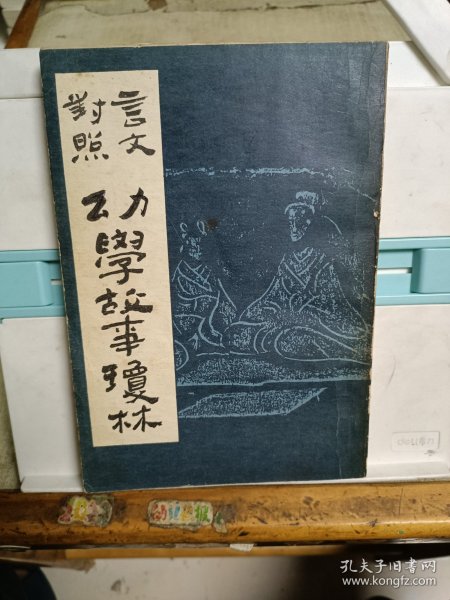 言文
對照
幼學故事瓊林
孔夫子旧书网
www.kongfz.com